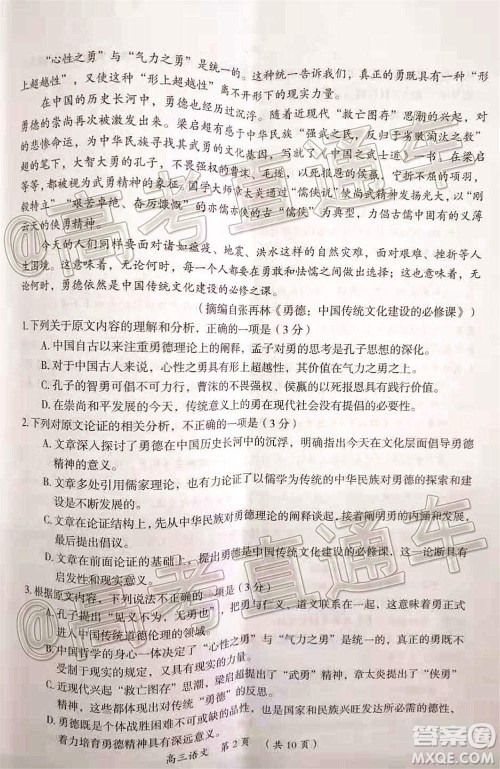 “心性之勇”与“气力之勇”是统一的。这统一告诉我们，真正的勇既是一种“形
上超越性”，又使这种“形上超越性”离不开形下的现实世界。
在中国的历史长河中，勇德也经历过沉浮。随着近现代“救亡图存”思潮的兴起，对
勇德的崇尚再次变得炙手可热。梁启超有感于中华民族“强武之民，反归于劣败淘汰之数”
的悲惨命运，为中华民族探寻其武勇的文化基因，写下《中国之武士道》一书，在梁启
超那里，大智大勇的孔子，不畏强御的曹沫，
毅特立”、“艰苦卓绝、奋厉慷慨”的亦儒亦侠的古“儒侠”为典型，力倡古道义的薄
云天的侠勇精神。
今天的人们同样要面对诸如瘟疫、地震、洪水这样的灾难，难免遭遇各种各样的人
生困境。这意味着，无论何时，我们都要在勇敢和怯懦之间做出自己的选择。这意味着，无
论何时，勇德依然是中国传统文化建设的必修之课。
（摘编自张再林《勇德：中国传统文化建设的必修课》）
1.下列关于原文内容的理解和分析，正确的一项是（3分）
A.中国自古以来注重勇德理论上的阐释，孟子对勇的阐释超越孔子思想。
B.对于中国古人来说，心性之勇与气力之勇，前者更重要，也更具有超越性。
C.孔子的智勇可倡不可行，曹沫的不畏强御、侯嬴的以死报恩可敬不可效。
D.在崇尚和平与发展的时代，舍生取死的勇在现代社会没有提倡的必要性。
2.下列对原文论证的相关分析，不正确的一项是（3分）
A.文章深入探讨了勇德在中国历史长河中的沉浮，明确指出今天在文化建设上倡导勇德
精神的意义。
B.文章多处引用儒家理论，也有力论证了以儒学为传统的中国文化对勇德的探索和发展。
C.文章在论证结构上，先从中华民族对勇德理论的阐释谈起，接着阐明勇的历史发展，
最后提出倡议。
D.文章在前面论证的基础上，最后提出勇德是中国传统文化建设的必修课，具有深远的
启发性和现实意义。
3.根据原文内容，下列说法不正确的一项是（3分）
A.孔子提出“见义不为，无勇也”，把勇与仁义、道义联系在一起，使我民族的勇正式
进入中国传统道德伦理的领域。
B.中国哲学的身心一体决定了“心性之勇”与“气力之勇”是统一的，真正的勇无不
受制于形上与形下的统一。
C.近现代兴起“救亡图存”思潮，梁启超提出了“武勇”精神，章太炎提出了“侠勇”
精神，促进了对勇德的反思。
D.勇德的崇尚是个体战胜困难不可或缺的品质，也关乎中华民族的生死存亡，这意味着
着力培育勇德精神具有深远意义。
高三语文 第2页 （共10页）
@高考直通车
@高考直通车